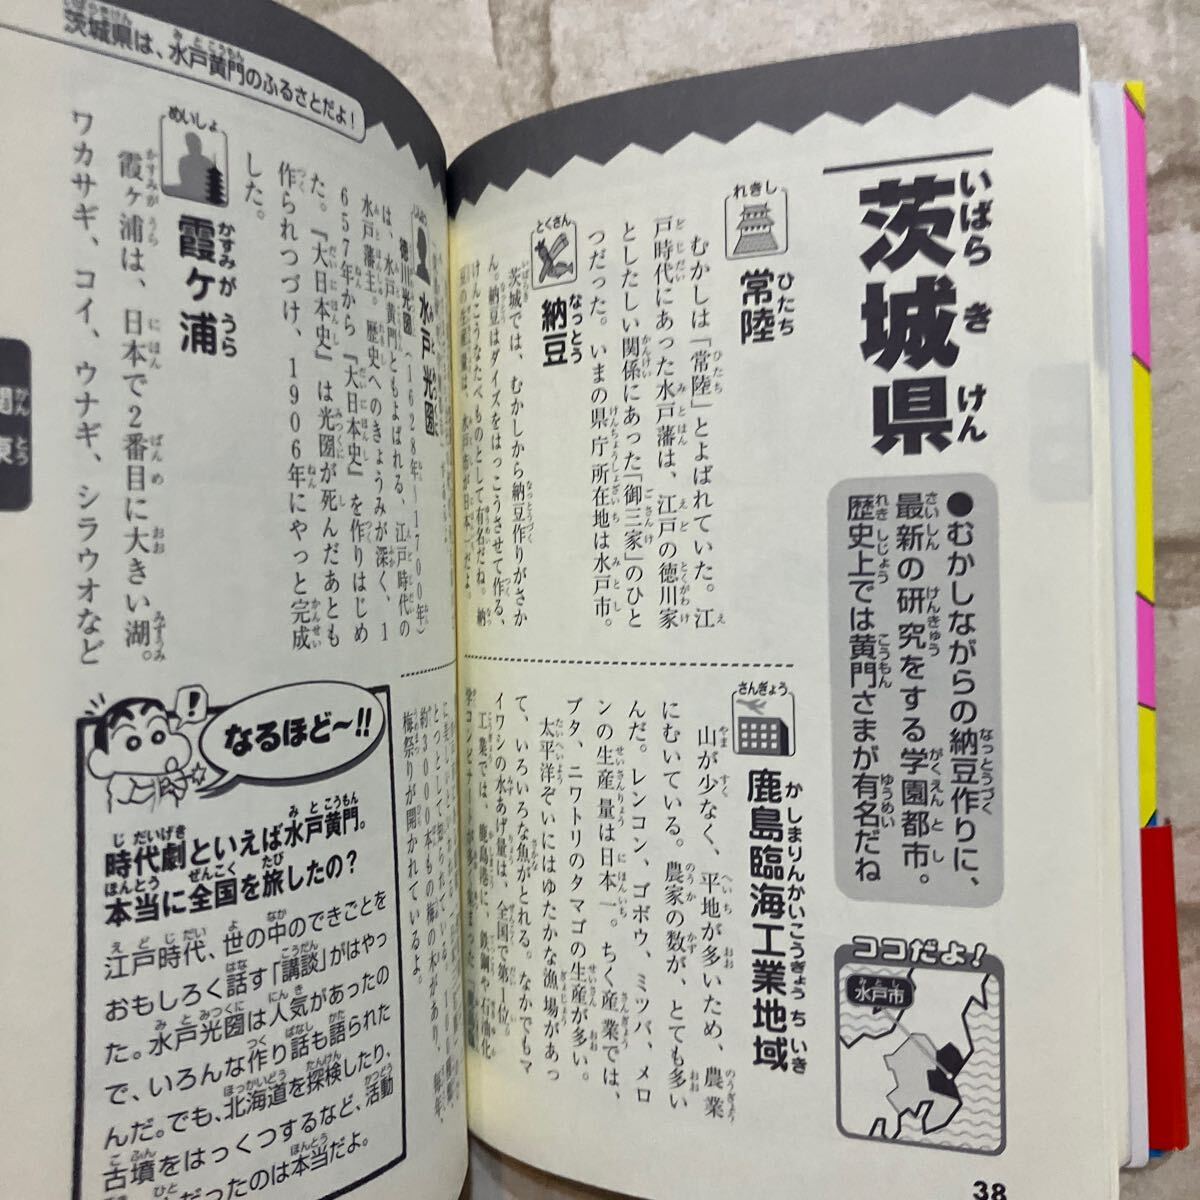 茨城県
いばらきけん
●むかしながらの納豆作りに、
最新の研究をする学園都市。
歴史上では黄門さまが有名だね
ココだよ!
水戸市
れきし
常陸
ひたち
むかしは「常陸」とよばれていた。江
戸時代にあった水戸藩は、江戸の徳川家
としたしい関係にあった「御三家」のひと
つだった。いまの県庁所在地は水戸市。
とくさん
納豆
なっとう
茨城では、むかしから納豆作りがさか
ん。納豆はダイズをはっこうさせて作る、
けんこうなたべものとして有名だね。納
さんぎょう
鹿島臨海工業地域
かしまりんかいこうぎょうちいき
山が少なく、平地が多いため、農業
にむいている。農家の数が、とても多い
んだ。レンコン、ゴボウ、ミツバ、メロ
ンの生産量は日本一。ちく産業では、
ブタ、ニワトリのタマゴの生産が多い。
太平洋ぞいにはゆたかな漁場があっ
て、いろいろな魚がとれる。なかでもマ
イワシの水あげ量は、全国で第1位。
工業では、鹿島港に、鉄鋼や石油化
38
茨城県は、水戸黄門のふるさとだよ!
水戸光圀
徳川光圀(1628年〜1700年)
は、水戸黄門ともよばれる、江戸時代の
水戸藩主。歴史へのきょうみが深く、1
657年から『大日本史』を作りはじめ
た。『大日本史』は光圀が死んだあとも
作られつづけ、1906年にやっと完成
した。
めいしょ
霞ヶ浦
かすみがうら
霞ヶ浦は、日本で2番目に大きい湖。
ワカサギ、コイ、ウナギ、シラウオなど
約3000本もの梅の木があり、毎年、
梅祭りが開かれているよ。
関東
かんとう
!
なるほど〜!!
時代劇といえば水戸黄門。
本当に全国を旅したの?
江戸時代、世の中のできごとを
おもしろく話す「講談」がはやっ
た。水戸光圀は人気があったの
で、いろんな作り話も語られた
んだ。でも、北海道を探検したり、
古墳をはっくつするなど、活動
だったのは本当だよ。